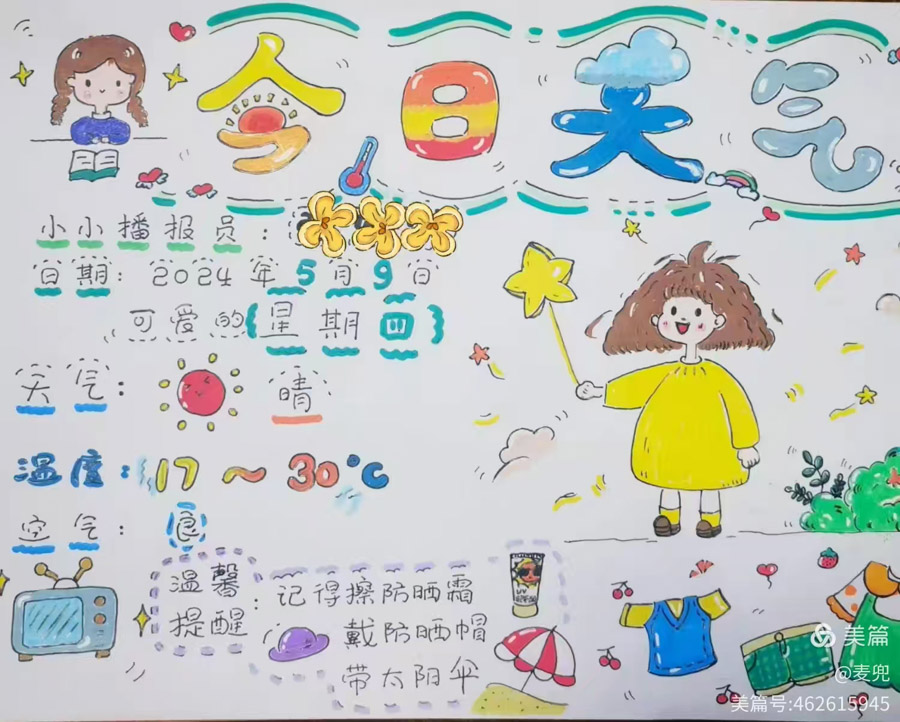 今日天气
小小播报员：
日期：2024年5月9日
可爱的(星期四)
天气： 晴
温度：17～30°C
空气：良
温馨提醒：记得擦防晒霜
戴防晒帽
带太阳伞
UV
美篇
@麦兜
美篇号:462615945